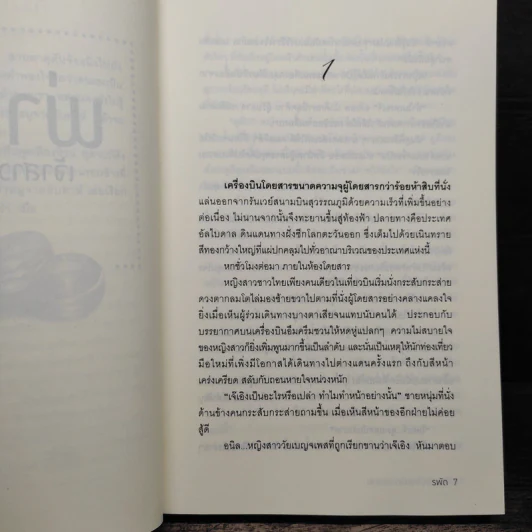 พ่า
เจ้าสาว
1
เครื่องบินโดยสารขนาดความจุผู้โดยสารกว่าร้อยห้าสิบที่นั่ง
แล่นออกจากรันเวย์สนามบินสุวรรณภูมิด้วยความเร็วที่เพิ่มขึ้นอย่าง
ต่อเนื่อง ไม่นานจากนั้นจึงทะยานขึ้นสู่ท้องฟ้า ปลายทางคือประเทศ
อัลไบดาล ดินแดนทางฝั่งซีกโลกตะวันออก ซึ่งเต็มไปด้วยเนินทราย
สีทองกว้างใหญ่ที่แผ่ปกคลุมไปทั่วอาณาบริเวณของประเทศแห่งนี้
หกชั่วโมงต่อมา ภายในห้องโดยสาร
หญิงสาวชาวไทยเพียงคนเดียวในเที่ยวบินเริ่มนั่งกระสับกระส่าย
ดวงตากลมโตไล่มองซ้ายขวาไปตามที่นั่งผู้โดยสารอย่างคลางแคลงใจ
ยิ่งเมื่อเห็นผู้ร่วมเดินทางบางตาเสียจนแทบนับคนได้ ประกอบกับ
บรรยากาศบนเครื่องบินอึมครึมชวนให้หดหู่แปลกๆ ความไม่สบายใจ
ของหญิงสาวก็ยิ่งเพิ่มพูนมากขึ้นเป็นลำดับ และนั่นเป็นเหตุให้นักท่องเที่ยว
มือใหม่ที่เพิ่งมีโอกาสได้เดินทางไปต่างแดนครั้งแรก ถึงกับสีหน้า
เคร่งเครียด สลับกับถอนหายใจหน่วงหนัก
“เจ๊เอิงเป็นอะไรหรือเปล่า ทำไมทำหน้าอย่างนั้น” ชายหนุ่มที่นั่ง
ด้านข้างคนกระสับกระส่ายถามขึ้น เมื่อเห็นสีหน้าของอีกฝ่ายไม่ค่อย
สู้ดี
อนิล...หญิงสาววัยเบญจเพสที่ถูกเรียกขานว่าเจ๊เอิง หันมาตอบ
รพัด 7